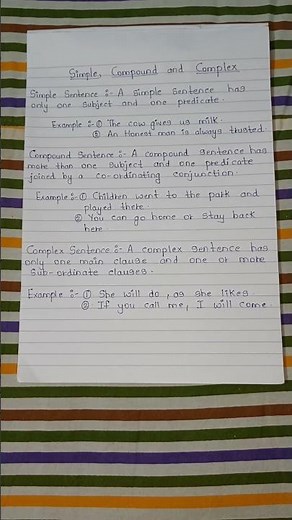 Simple, Compound and Complex
Simple Sentence :- A Simple Sentence has
only one subject and one predicate.
Example :- ① The cow gives us milk
② An Honest man is always trusted
Compound Sentence :- A compound sentence has
more than one Subject and one predicate
joined by a co-ordinating conjunction
Example :- ① Children went to the park and
played there
② You can go home or stay back
here
Complex Sentence :- A complex sentence has
only one main clause and one or more
Sub-ordinate clauses.
Example :- ① She will do, as she likes
② If you call me, I will come.